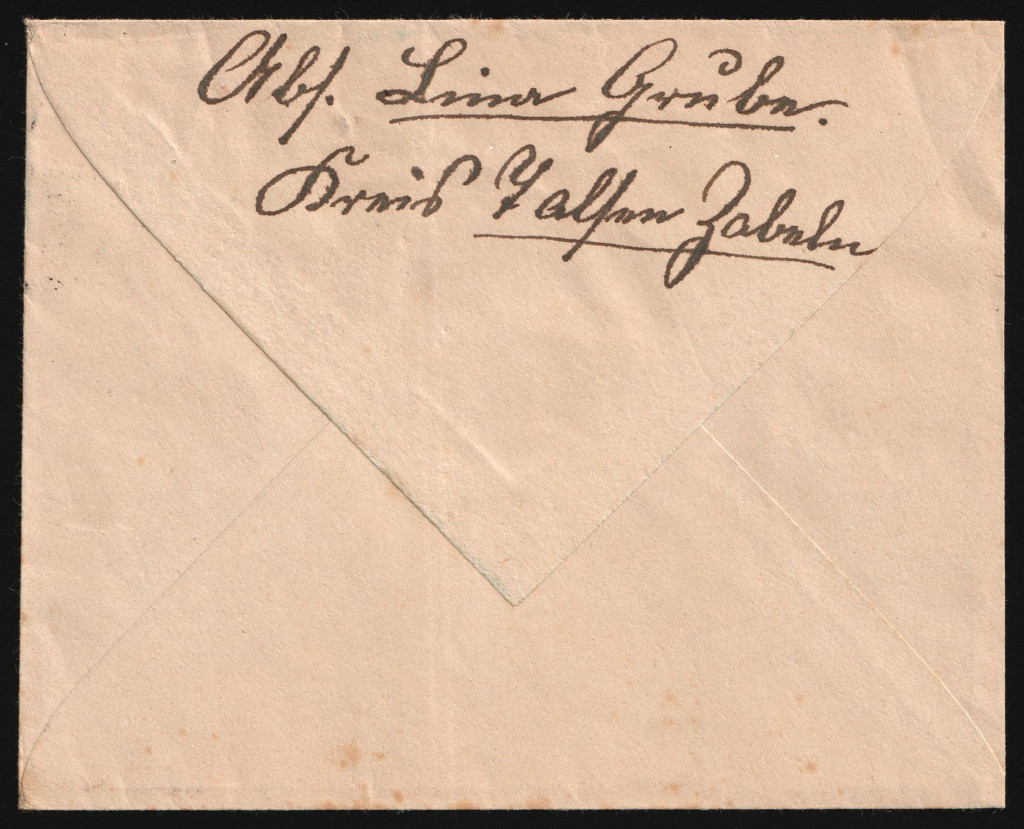 Abs. Lina Grube.
Kreis Talsen Zabeln